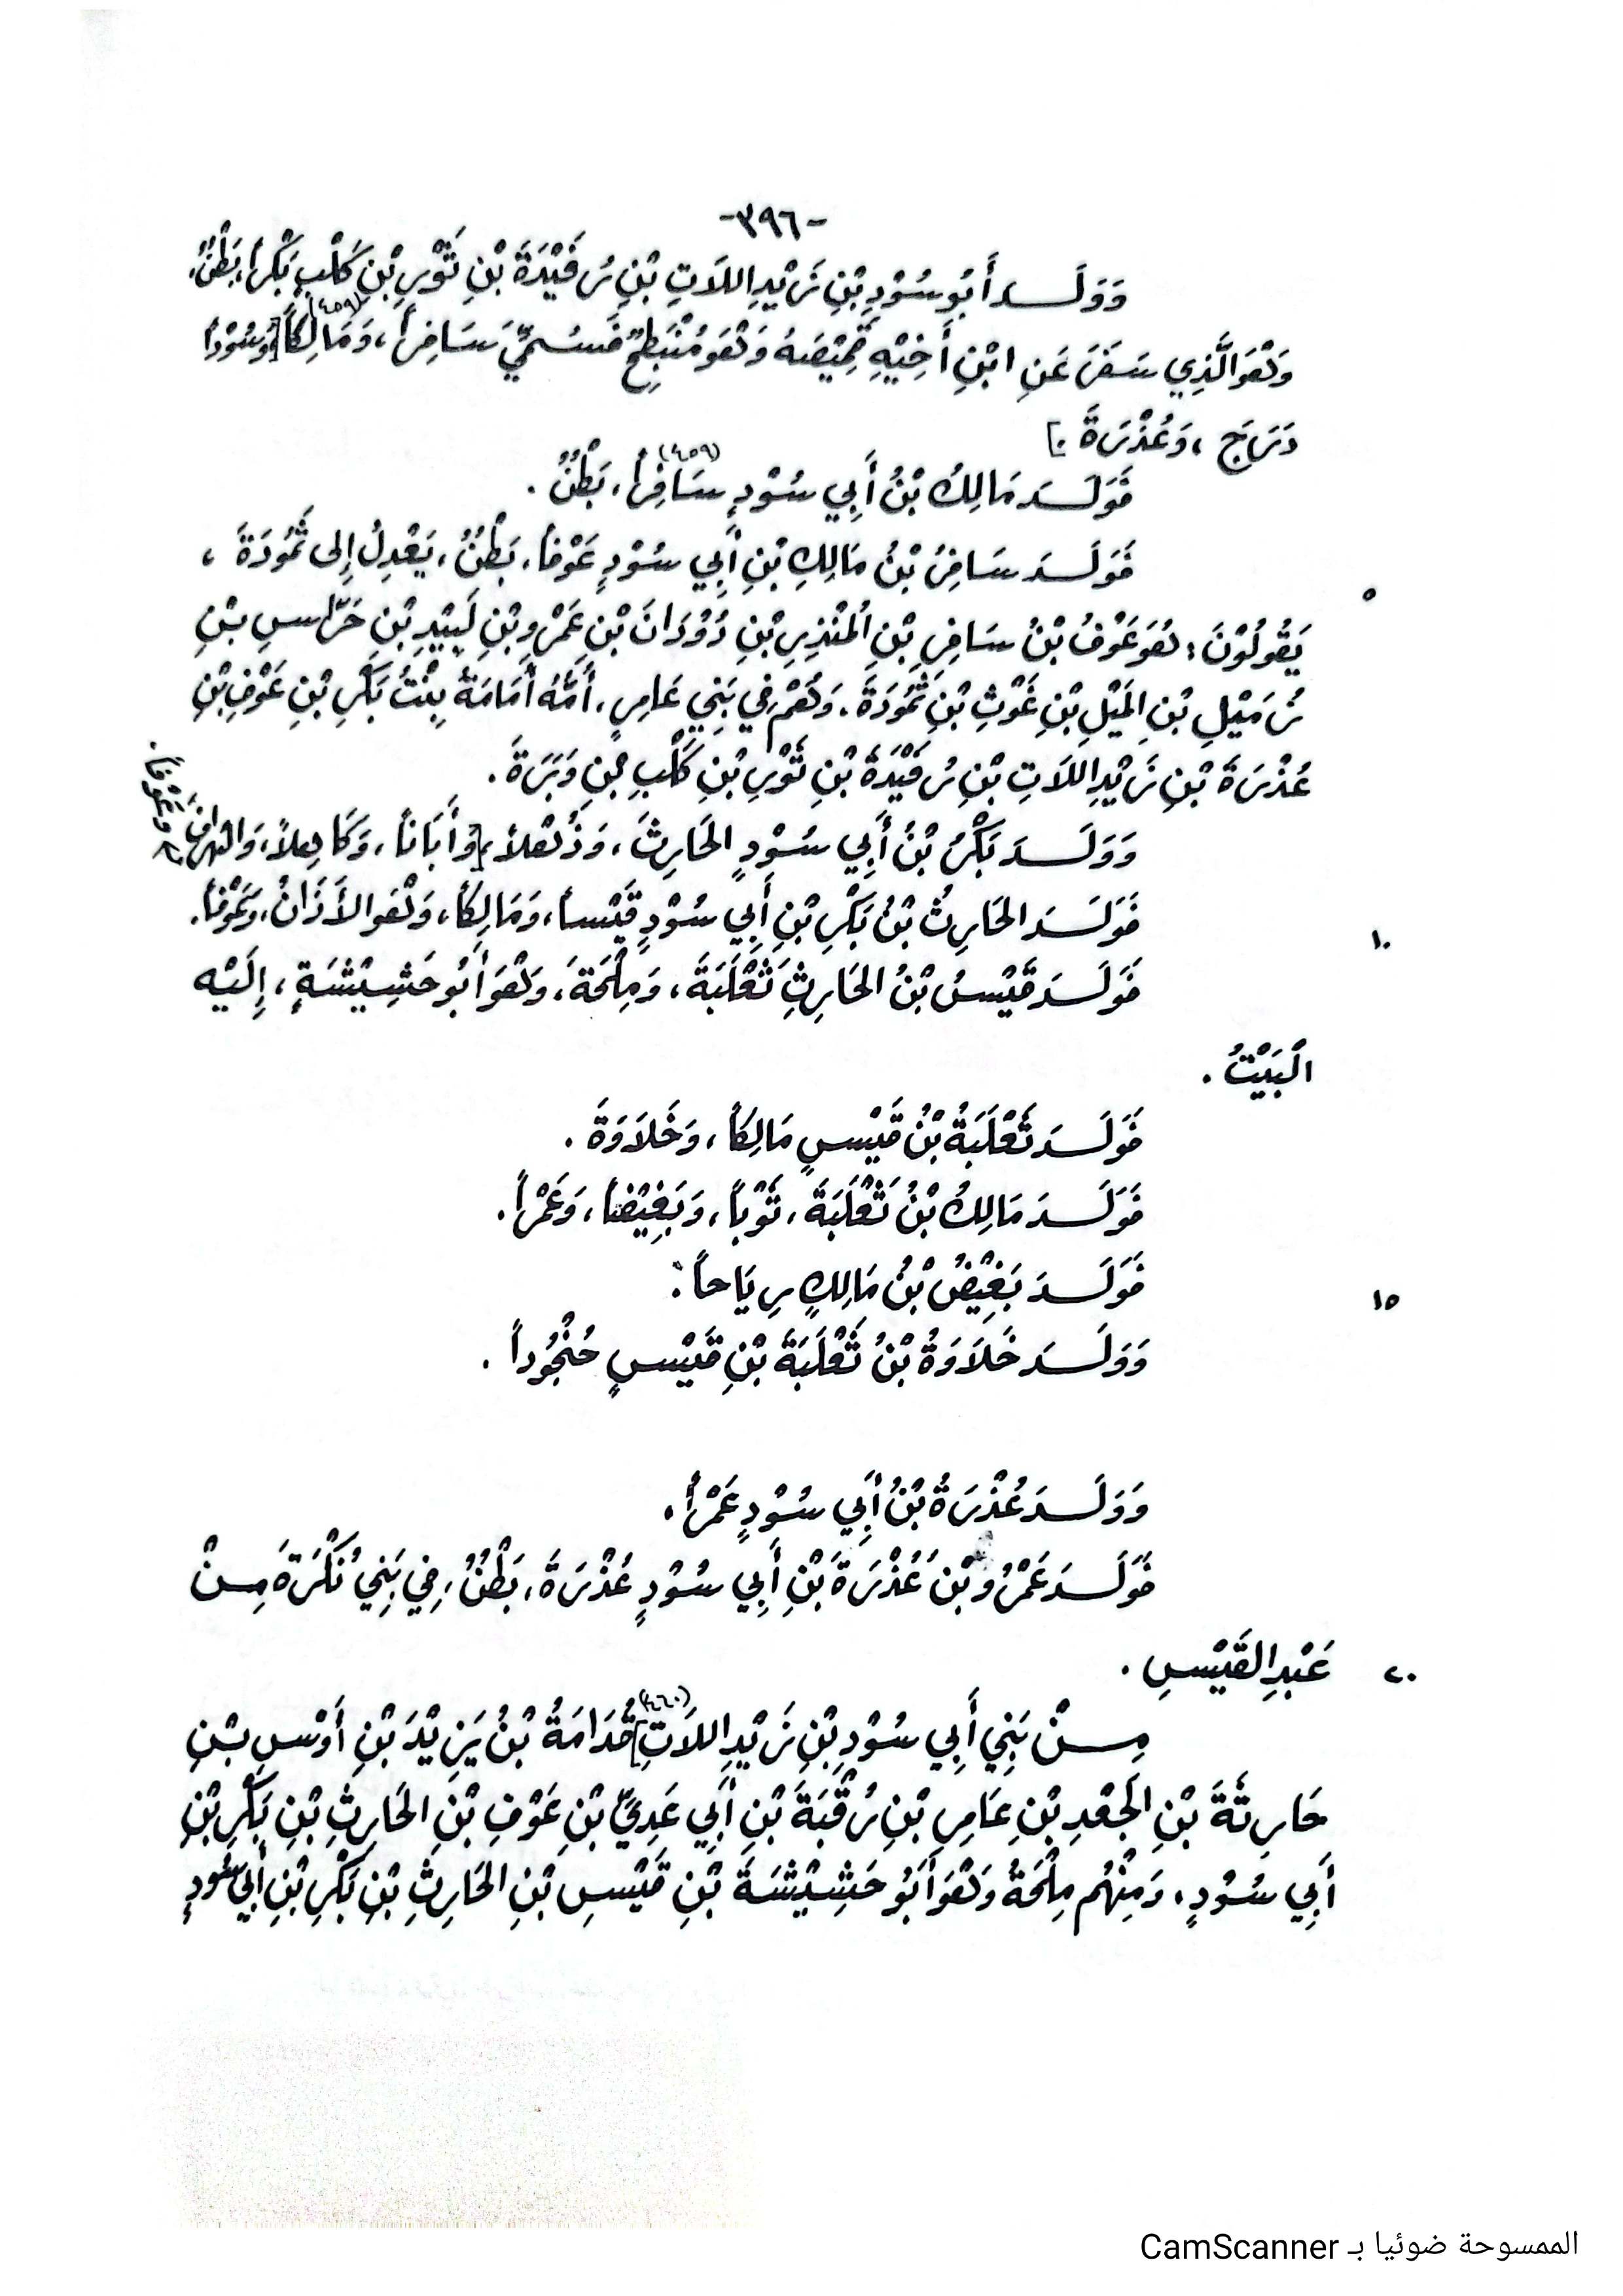 -٣٩٦-
وَوَلَـــدَ أَبُو سُوْدِ بْنِ زَيْدِ اللَّاتِ بْنِ رُفَيْدَةَ بْنِ ثَوْرِ بْنِ كَلْبٍ بَكْراً، بَطْنٌ،
وَهُوَ الَّذِي سَفَرَ عَنِ ابْنِ أَخِيْهِ قَمِيْصَهُ وَهُوَ مُنْبَطِحٌ فَسُمِّيَ سَافِراً، وَمَالِكاً (٤٥٩) [وَسُوْداً
دَرَجَ ، وَعُذْرَةَ .]
فَوَلَـــدَ مَالِكُ بْنُ أَبِي سُوْدٍ سَافِراً (٤٥٩)، بَطْنٌ .
فَوَلَـــدَ سَافِرُ بْنُ مَالِكِ بْنِ أَبِي سُوْدٍ عَوْفاً، بَطْنٌ، يَعْدِلُ إِلى ثَمُودَةَ ،
٥
يَقُولُوْنَ : هُوَ عَوْفُ بْنُ سَافِرِ بْنِ الْمُنْذِرِ بْنِ دُوْدَانَ بْنِ عَمْرِو بْنِ لَبِيْدِ بْنِ حَرَّاسِ بْنِ
زُمَيْلِ بْنِ الَميْلِ بْنِ غَوْثِ بْنِ ثَمُودَةَ . وَهُمْ فِي بَنِي عَامِرٍ، أُمُّهُ أُمَامَةُ بِنْتُ بَكْرِ بْنِ عَوْفِ بْنِ
عُذْرَةَ بْنِ زَيْدِ اللَّاتِ بْنِ رُفَيْدَةَ بْنِ ثَوْرِ بْنِ كَلْبِ بْنِ وَبَرَةَ .
وَوَلَـــدَ بَكْرُ بْنُ أَبِي سُوْدٍ الحَارِثَ ، وَذُهْلاً، [وَأَبَاناً، وَكَاهِلاً، وَ وَعَوْفاً.
فَوَلَـــدَ الحَارِثُ بْنُ بَكْرِ بْنِ أَبِي سُوْدٍ قَيْساً، وَمَالِكاً، وَهُوَ الأَذَانُ، وَعَوْفاً.
١٠
فَوَلَـــدَ قَيْسُ بْنُ الحَارِثِ ثَعْلَبَةَ ، وَمِلْحَةَ، وَهُوَ أَبُو حَشِيْشَةٍ ، إِلَيْهِ
الْبَيْتُ .
فَوَلَـــدَ ثَعْلَبَةُ بْنُ قَيْسٍ مَالِكاً ، وَخَلَاوَةَ .
فَوَلَـــدَ مَالِكُ بْنُ ثَعْلَبَةَ ، ثَوْباً ، وَبَغِيْضاً ، وَعَمْراً .
فَوَلَـــدَ بَغِيْضُ بْنُ مَالِكٍ رِيَاحاً .
١٥
وَوَلَـــدَ خَلَاوَةُ بْنُ ثَعْلَبَةَ بْنِ قَيْسٍ حُنْجُوداً .
وَوَلَـــدَ عُذْرَةُ بْنُ أَبِي سُوْدٍ عَمْراً .
فَوَلَـــدَ عَمْرُو بْنُ عُذْرَةَ بْنِ أَبِي سُوْدٍ عُذْرَةَ ، بَطْنٌ ، فِي بَنِي نُكْرَةَ مِنْ
عَبْدِ القَيْسِ .
٢٠
مِـــنْ بَنِي أَبِي سُوْدِ بْنِ زَيْدِ اللَّاتِ (٤٦٠) [قُدَامَةُ بْنُ يَزِيْدَ بْنِ أَوْسِ بْنِ
حَارِثَةَ بْنِ الْجَعْدِ بْنِ عَامِرِ بْنِ رُقْبَةَ بْنِ أَبِي عَدِيِّ بْنِ عَوْفِ بْنِ الحَارِثِ بْنِ بَكْرِ بْنِ
أَبِي سُوْدٍ، وَمِنْهُم مِلْحَةُ وَهُوَ أَبُو حَشِيْشَةَ بْنِ قَيْسِ بْنِ الحَارِثِ بْنِ بَكْرِ بْنِ أَبِي سُودٍ
الممسوحة ضوئيا بـ CamScanner